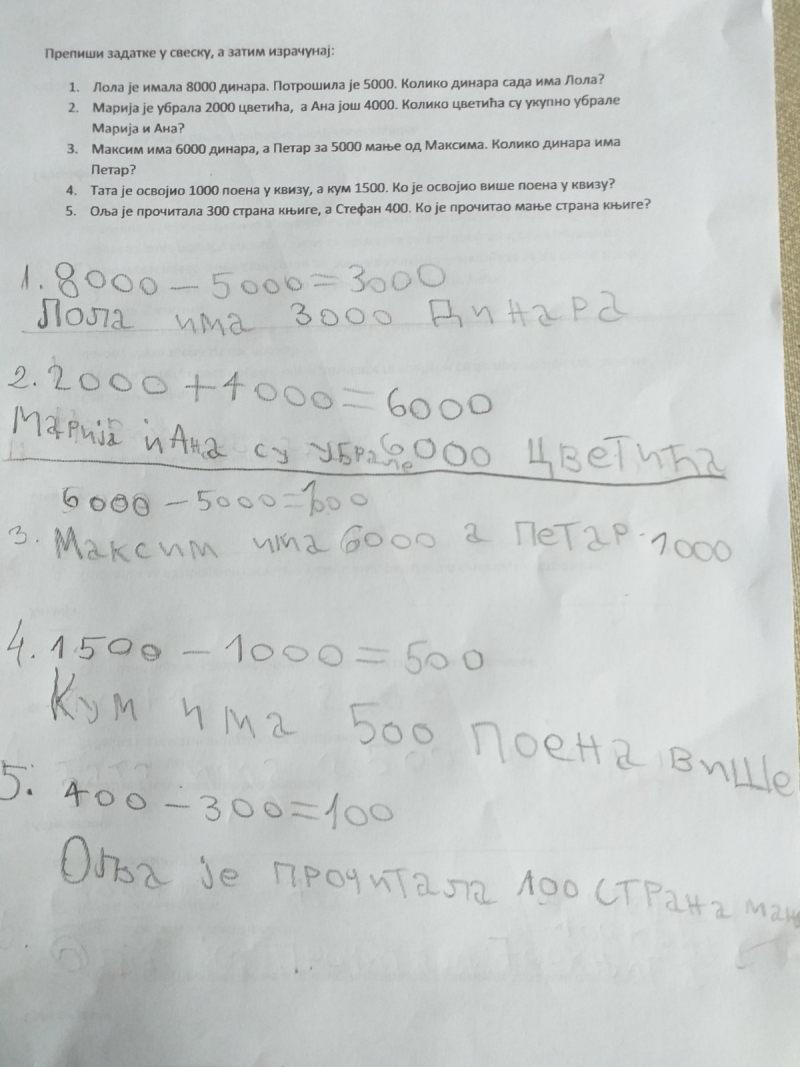 Препиши задатке у свеску, а затим израчунај:
1. Лола је имала 8000 динара. Потрошила је 5000. Колико динара сада има Лола?
2. Марија је убрала 2000 цветића, а Ана још 4000. Колико цветића су укупно убрале
Марија и Ана?
3. Максим има 6000 динара, а Петар за 5000 мање од Максима. Колико динара има
Петар?
4. Тата је освојио 1000 поена у квизу, а кум 1500. Ко је освојио више поена у квизу?
5. Оља је прочитала 300 страна књиге, а Стефан 400. Ко је прочитао мање страна књиге?
1. 8000 – 5000 = 3000
Лола има 3000 динара
2. 2000 + 4000 = 6000
Марија и Ана су убрале 6000 цветића
6000 – 5000 = 1000
3. Максим има 6000 а Петар 1000
4. 1500 – 1000 = 500
Кум има 500 поена више
5. 400 – 300 = 100
Оља је прочитала 100 страна мањ